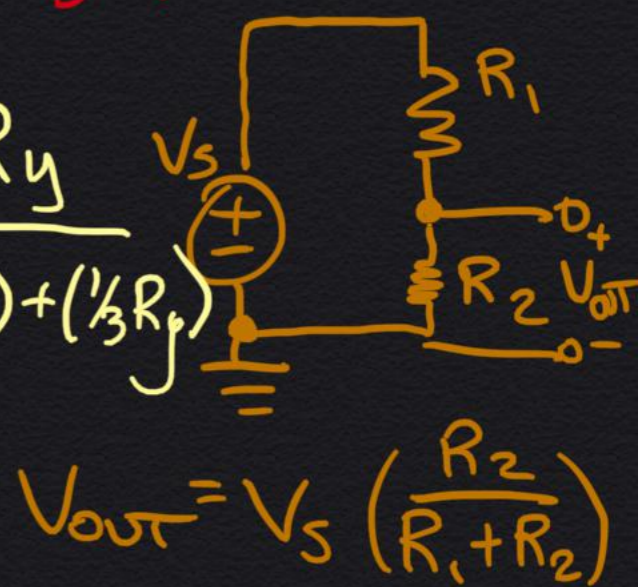 Ry
) + (1/3 Ry)
Vs
+
-
R1
+
R2 VOUT
-
VOUT = VS (R2 / R1 + R2)